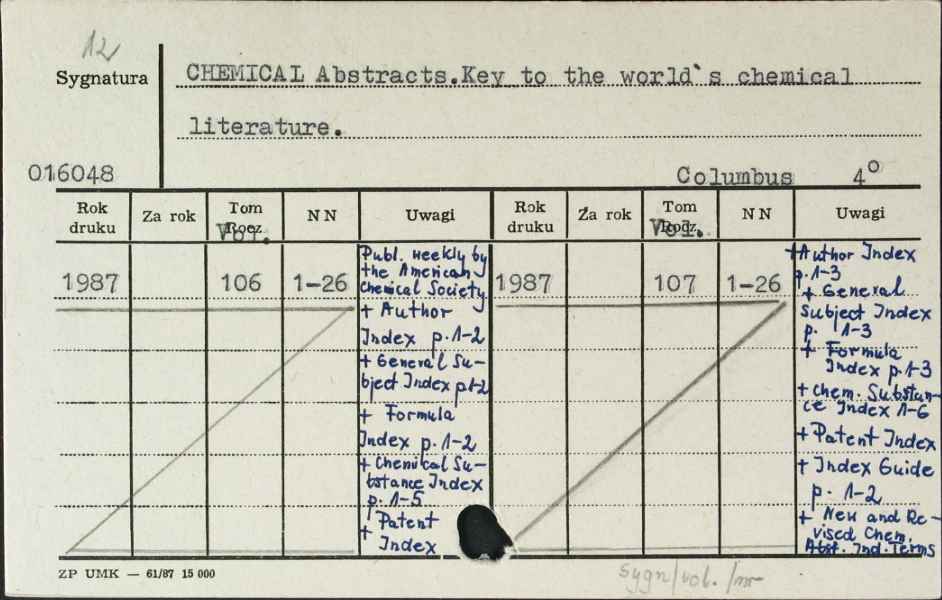 12
Sygnatura
CHEMICAL Abstracts.Key to the world`s chemical
literature.
016048
Columbus 4°
Rok druku Za rok Tom Rocz. Vol. NN Uwagi Rok druku Za rok Tom Rodz. Vol. NN Uwagi
1987 106 1-26
Publ. weekly by
the American
Chemical Society
+ Author
Index p. 1-2
+ General Su-
bject Index p 1-2
+ Formula
Index p. 1-2
+ Chemical Su-
bstance Index
p. 1-5
+ Patent
Index
1987 107 1-26
+Author Index
p. 1-3
+ General
Subject Index
p. 1-3
+ Formula
Index p. 1-3
+ Chem. Substan-
ce Index 1-6
+ Patent Index
+ Index Guide
p. 1-2
+ New and Re-
vised Chem.
Abst. Ind. Terms
ZP UMK — 61/87 15 000
sygn/vol. /nr